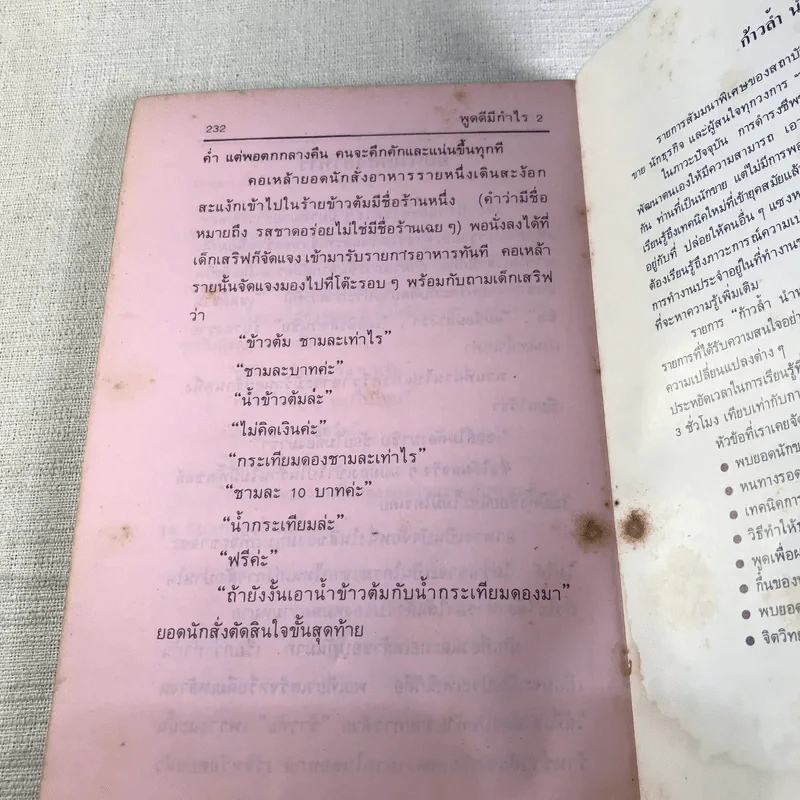 232 พูดดีมีกำไร 2
ค่ำ แต่พอตกกลางคืน คนจะคึกคักและแน่นขึ้นทุกที
คอเหล้ายอดนักสั่งอาหารรายหนึ่งเดินสะง้อก
สะแง้กเข้าไปในร้ายข้าวต้มมีชื่อร้านหนึ่ง (คำว่ามีชื่อ
หมายถึง รสชาดอร่อยไม่ใช่มีชื่อร้านเฉย ๆ) พอนั่งลงได้ที่
เด็กเสริฟก็จัดแจงเข้ามารับรายการอาหารทันที คอเหล้า
รายนั้นจัดแจงมองไปที่โต๊ะรอบ ๆ พร้อมกับถามเด็กเสริฟ
ว่า
“ข้าวต้ม ชามละเท่าไร”
“ชามละบาทค่ะ”
“น้ำข้าวต้มล่ะ”
“ไม่คิดเงินค่ะ”
“กระเทียมดองชามละเท่าไร”
“ชามละ 10 บาทค่ะ”
“น้ำกระเทียมล่ะ”
“ฟรีค่ะ”
“ถ้ายังงั้นเอาน้ำข้าวต้มกับน้ำกระเทียมดองมา”
ยอดนักสั่งตัดสินใจขั้นสุดท้าย
ก้าวล้ำ
รายการสัมมนาพิเศษของสถาบัน
ขาย นักธุรกิจ และผู้สนใจทุกวงการ
ในภาวะปัจจุบัน การดำรงชีพ
พัฒนาตนเองให้มีความสามารถ
กัน ท่านที่เป็นนักขาย แต่ไม่มีการ
เรียนรู้ถึงเทคนิคใหม่ที่เข้ายุคสมัยแล้ว
อยู่กับที่ ปล่อยให้คนอื่น ๆ แซง
ต้องเรียนรู้ถึงภาวะการณ์ความ
การทำงานประจำอยู่ในที่ทำงาน
ที่จะหาความรู้เพิ่มเติม
รายการ "ก้าวล้ำ
รายการที่ได้รับความสนใจอย่าง
ความเปลี่ยนแปลงต่าง ๆ
ประหยัดเวลาในการเรียนรู้ที่
3 ชั่วโมง เทียบเท่ากับ
หัวข้อที่เราเคย
● พบยอดนัก
● หนทางรอด
● เทคนิคการ
● วิธีทำให้
● พูดเพื่อ
● กึ๋นของ
● พบยอด
● จิตวิทย